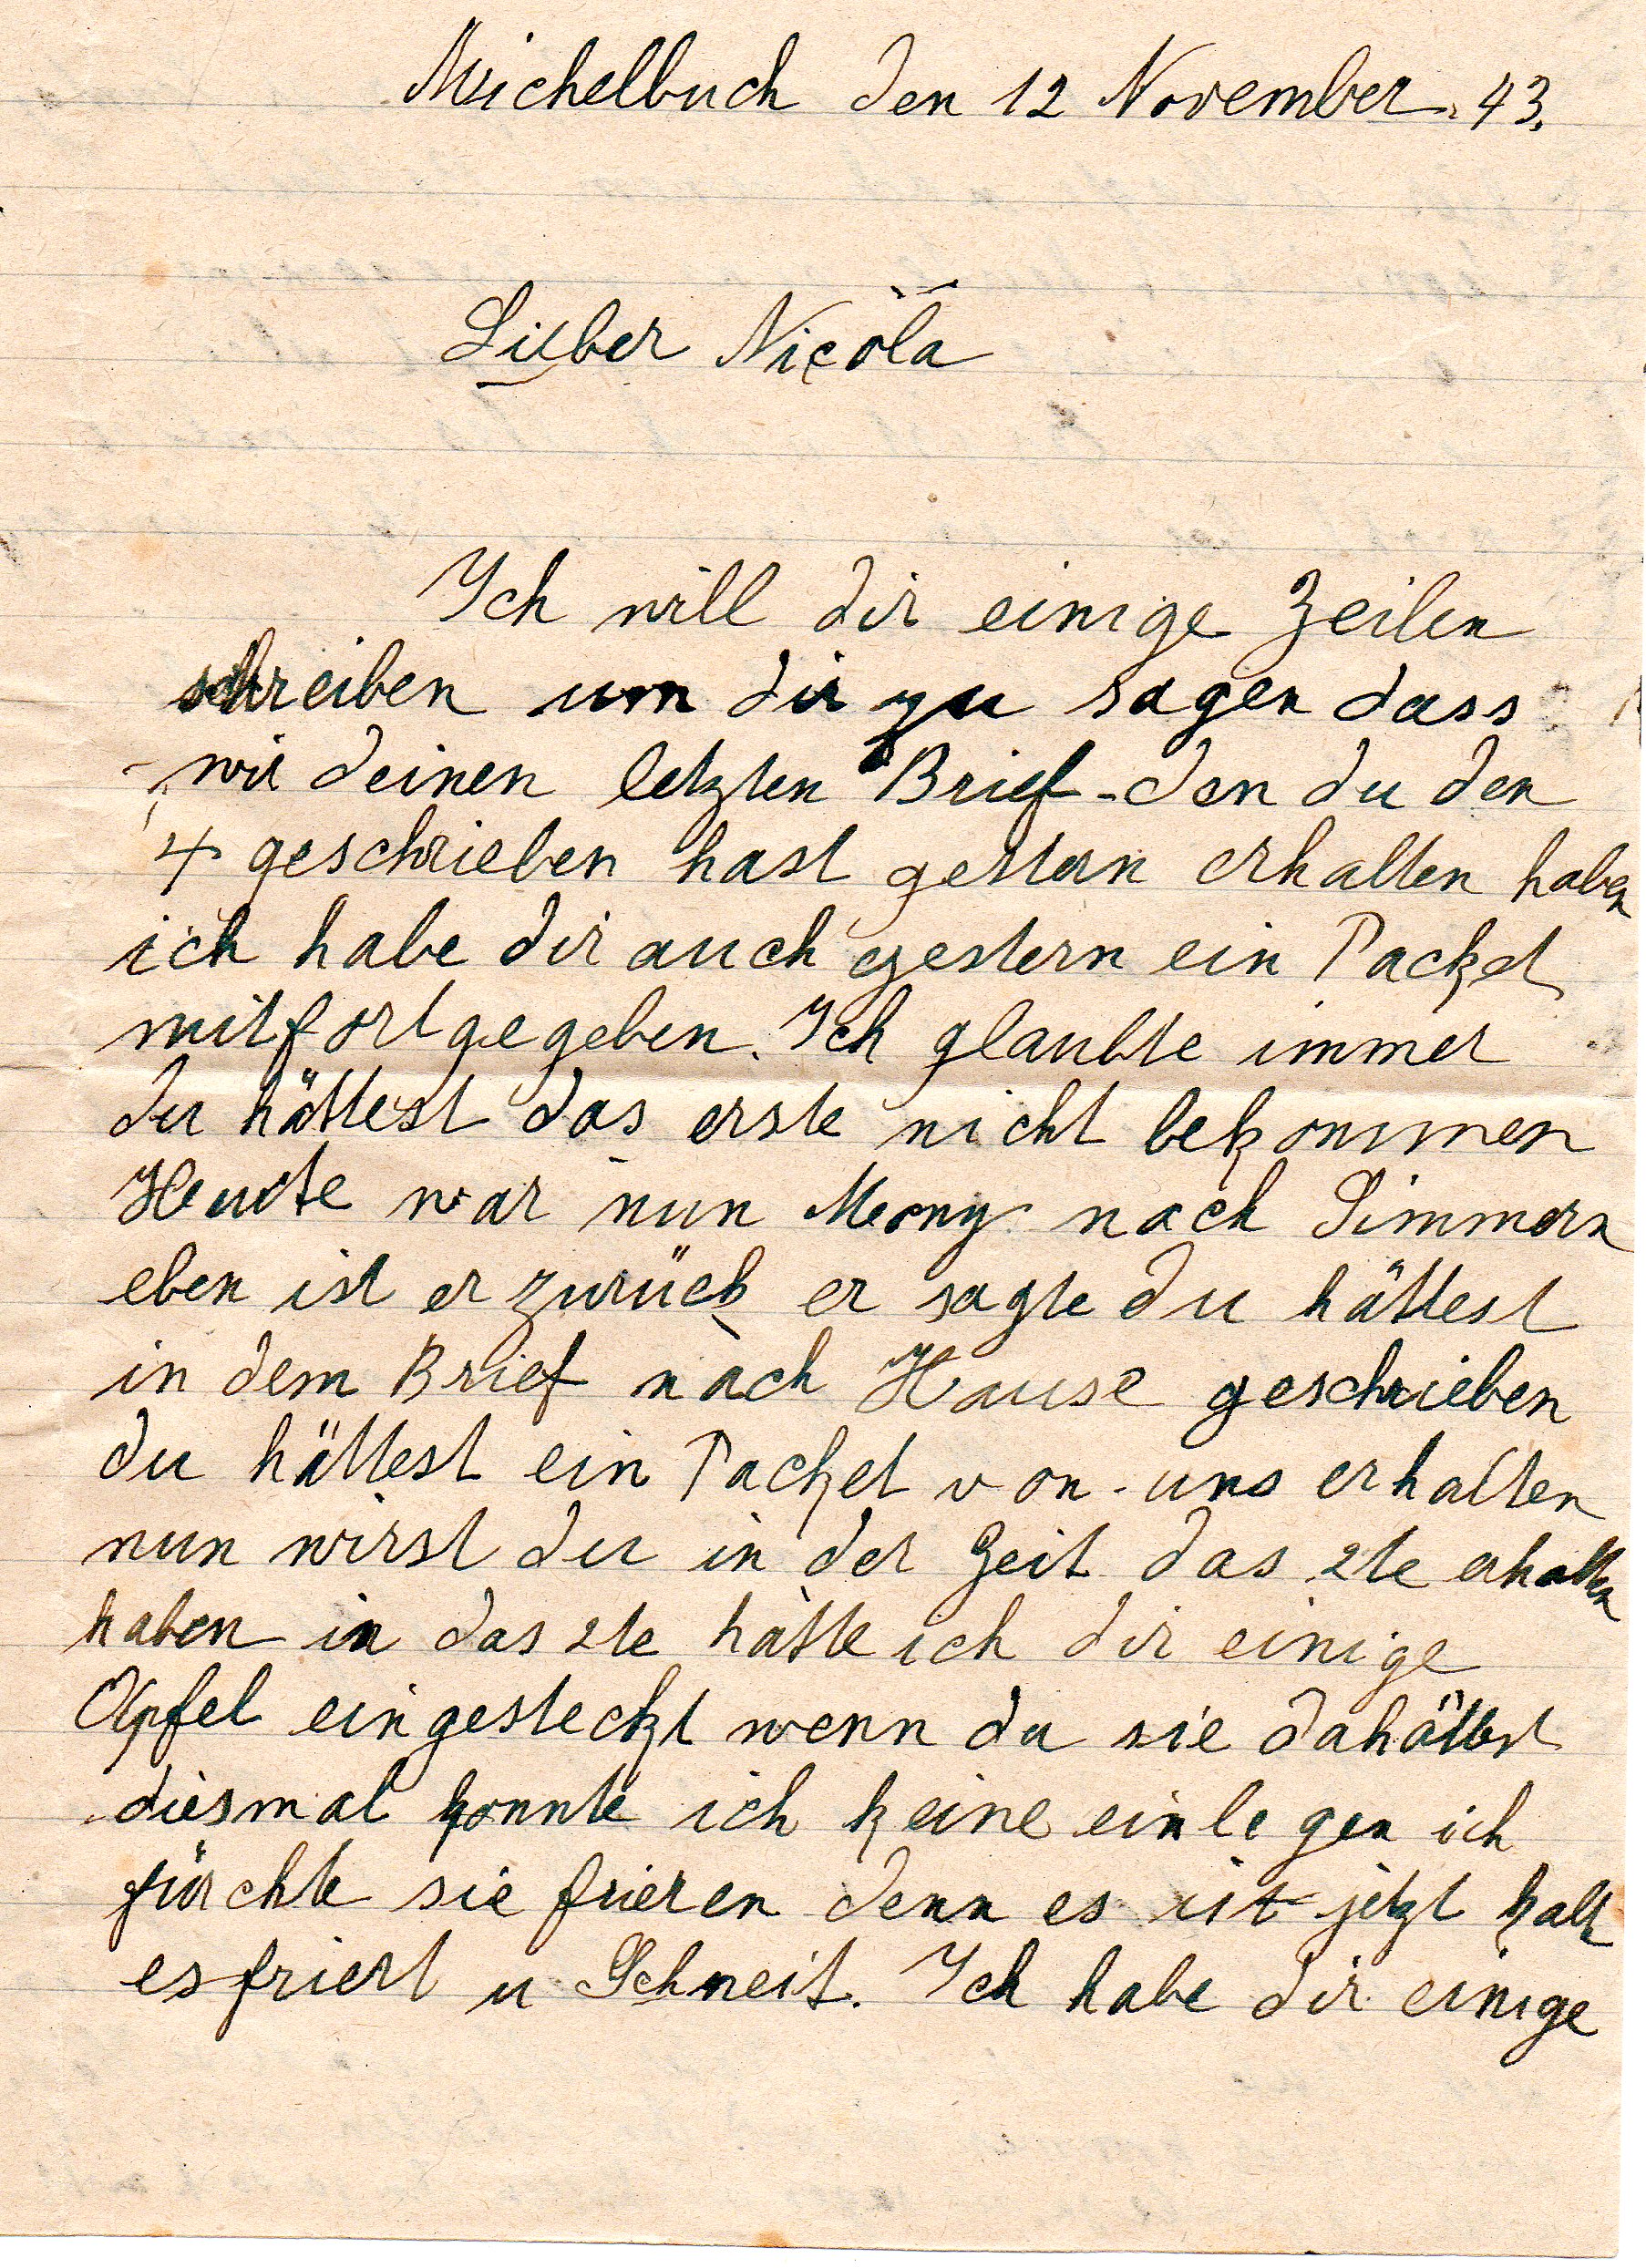 Michelbuch den 12 November. 43.
Lieber Nicola
Ich will dir einige Zeilen
schreiben um dir zu sagen dass
wir deinen letzten Brief den du den
4 geschrieben hast gestern erhalten haben
ich habe dir auch gestern ein Packet
mitfortgegeben. Ich glaubte immer
du hättest das erste nicht bekommen
Heute war nun nach Simmern
eben ist er zurück er sagte du hättest
in dem Brief nach Hause geschrieben
du hättest ein Packet von uns erhalten
nun wirst du in der Zeit das 2te erhalten
haben in das 2te hatte ich dir einige
Äpfel eingesteckt wenn du sie dahättest
diesmal konnte ich keine einlegen ich
fürchte sie frieren denn es ist jetzt kalt
es friert u Schneit. Ich habe dir einige